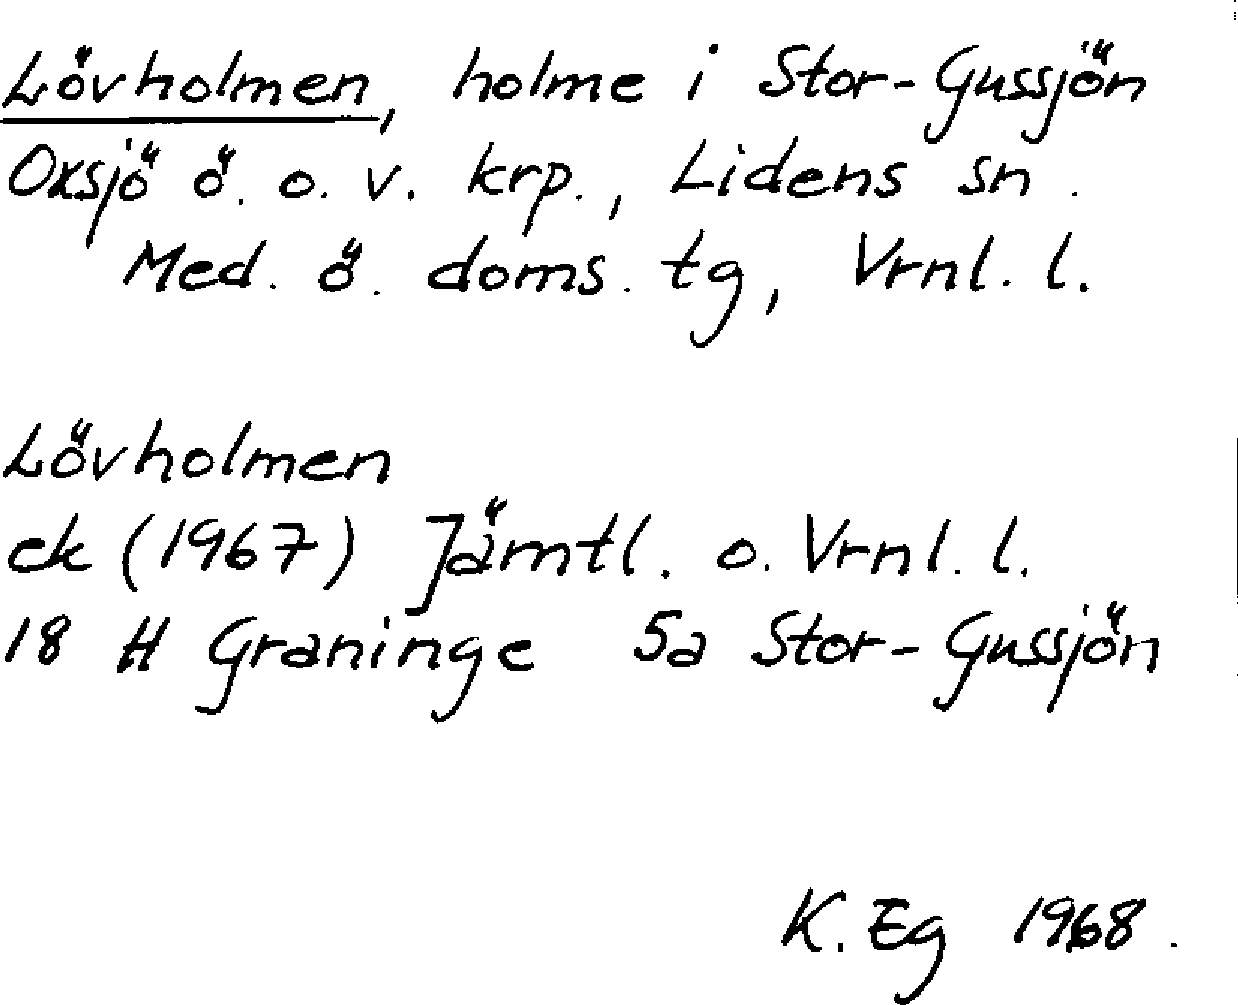 Lövholmen, holme i Stor-Gussjön
Oxsjö ö. o. v. krp., Lidens sn.
Med. ö. doms. tg, Vrnl. l.
Lövholmen
ek (1967) Jämtl. o. Vrnl. l.
18 H Graninge 5a Stor-Gussjön
K. Eg 1968.